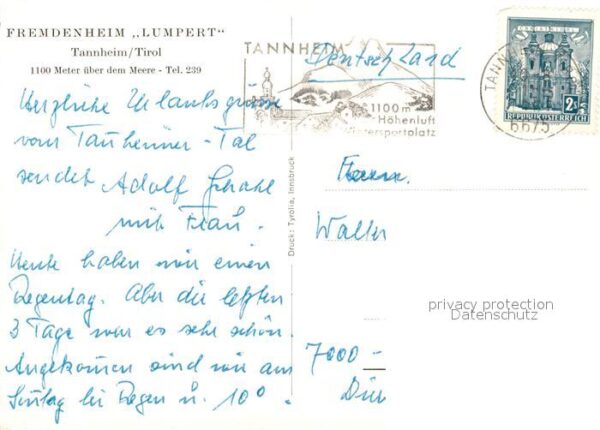 FREMDENHEIM „LUMPERT"
Tannheim/Tirol
1100 Meter über dem Meere - Tel. 239
Herzliche Urlaubsgrüsse
vom Tannheimer-Tal
sendet Adolf
mit Frau.
Heute haben wir einen
Regentag. Aber die letzten
3 Tage war es sehr schön.
Angekommen sind wir am
Sonntag bei Regen u. 10°.
Druck: Tyrolia, Innsbruck
TANNHEIM
1100m
Höhenluft
Wintersportplatz
Deutschland
TANN
6675
2S
REPUBLIK ÖSTERREICH
Walter
7000 -
privacy protection
Datenschutz